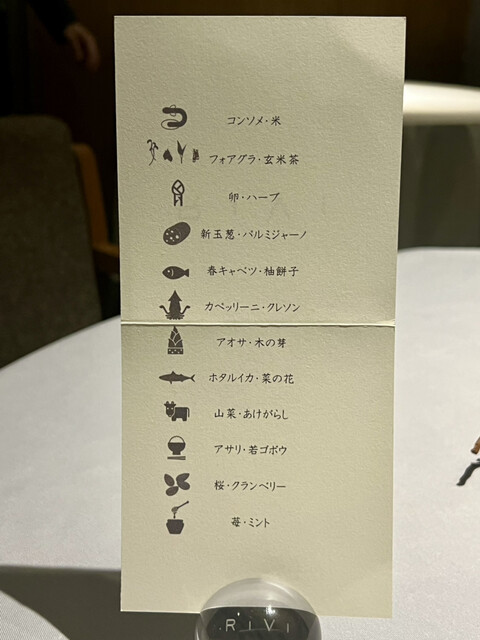 コンソメ・米
フォアグラ・玄米茶
卵・ハーブ
新玉葱・パルミジャーノ
春キャベツ・柚餅子
カペッリーニ・クレソン
アオサ・木の芽
ホタルイカ・菜の花
山菜・あけがらし
アサリ・若ゴボウ
桜・クランベリー
苺・ミント
RiVi